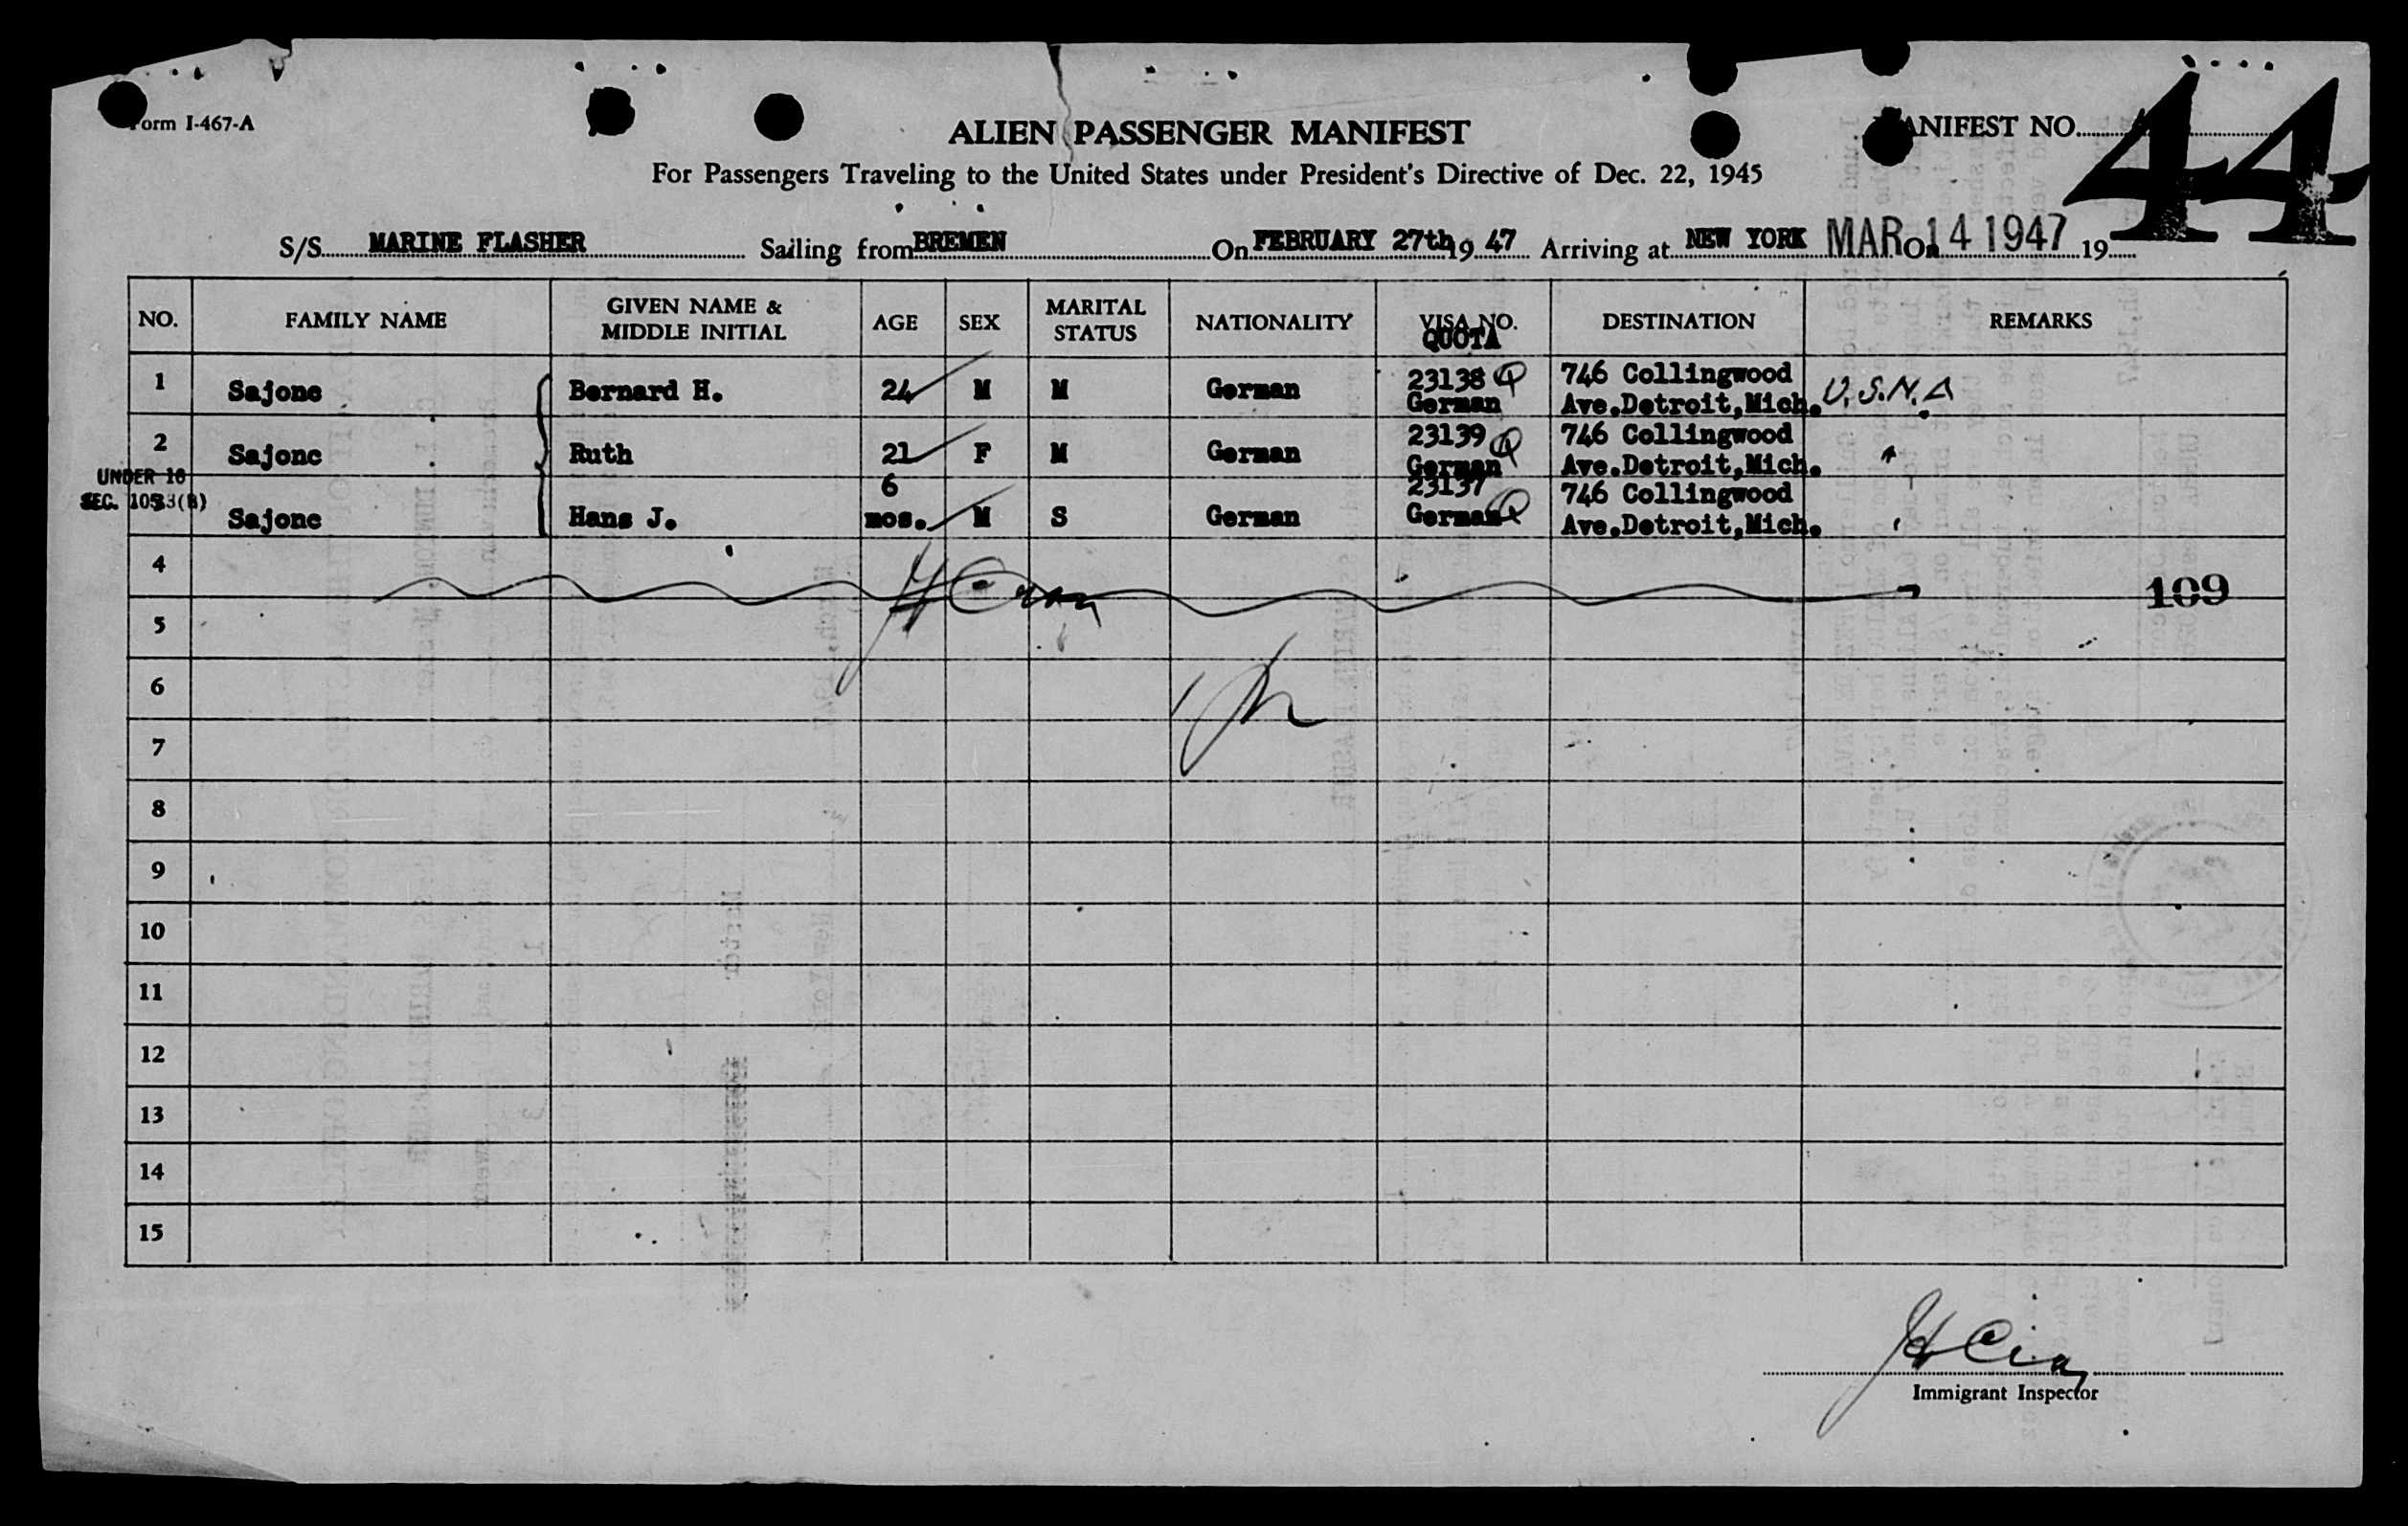 Form I-467-A
ALIEN PASSENGER MANIFEST
MANIFEST NO.
44
For Passengers Traveling to the United States under President's Directive of Dec. 22, 1945
S/S MARINE FLASHER Sailing from BREMEN On FEBRUARY 27th 19 47 Arriving at NEW YORK On MAR 14 1947 19
NO. FAMILY NAME GIVEN NAME & MIDDLE INITIAL AGE SEX MARITAL STATUS NATIONALITY VISA NO. QUOTA DESTINATION REMARKS
1 Sajonc Bernard H. 24 M M German 23138 Q German 746 Collingwood Ave.Detroit,Mich. U.S.N.A.
2 Sajonc Ruth 21 F M German 23139 Q German 746 Collingwood Ave.Detroit,Mich. "
UNDER 16
SEC. 105.3(B)
3 Sajonc Hans J. 6 mos. M S German 23137 Q German 746 Collingwood Ave.Detroit,Mich. "
4
109
5
6
7
8
9
10
11
12
13
14
15
Immigrant Inspector